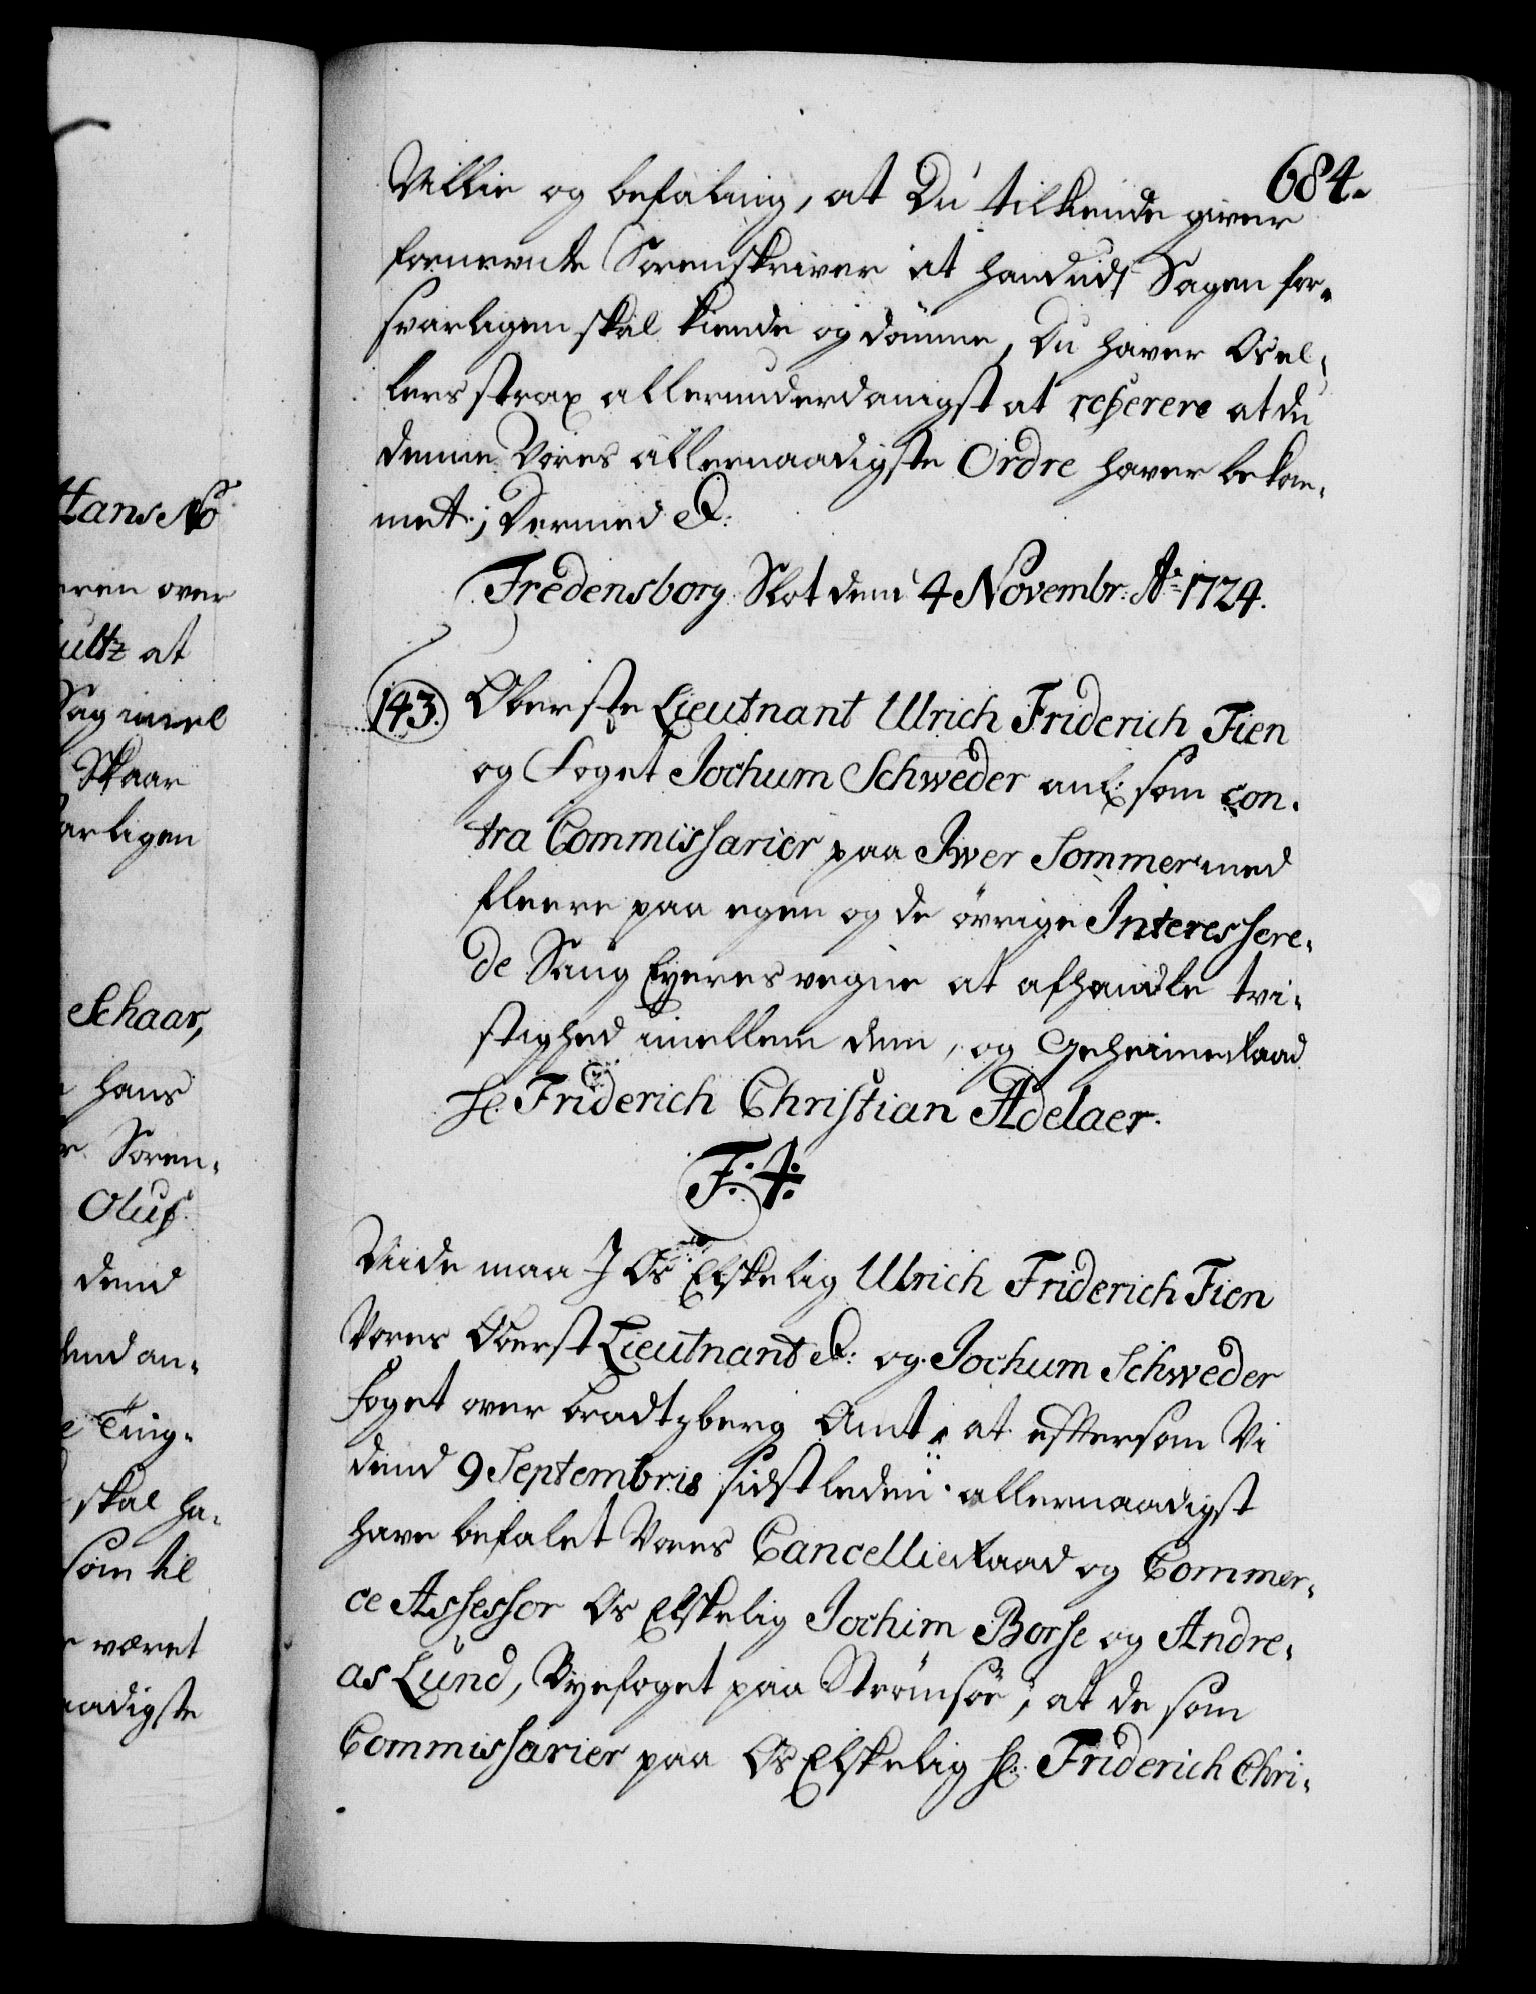 684.
Villie og befaling, at Du tilkiende giver
fornevnte Sorenskriver at hand udj Sagen for-
svarligen skal kiende og dömme, Du haver Os el-
lers strax allerunderdanigst at referere at du
denne Vores allernaadigste Ordre haver bekom-
met; Dermed &:
Fredensborg Slot den 4 Novembr: Ao 1724.
143. Oberste Lieutnant Ulrich Friderich Fien
og Foget Jochum Schweder anl: som con-
tra Commissarier paa Iwer Sommer med
fleere paa egen og de övrige Interessere-
de Saug Eyeres vegne at afhandle tvi-
stighed imellem dem, og Geheimeraad
Hr. Friderich Christian Adelaer.
F: 4:
Viide maa J Os Elskelig Ulrich Friderich Fien
Vores Oberst Lieutnant &: og Jochum Schweder
Foget over Bradtzberg Amt, at eftersom Vi
dend 9 Septembris sidstleden allernaadigst
have befalet Vores Cancellieraad og Commer-
ce Assessor Os Elskelig Jochim Borse og Andre-
as Lund, Byefoget paa Strömsöe, at de som
Commissarier paa Os Elskelig Hr: Friderich Chri-
Hans No
eren over
ultz at
Sag imel
Skaar
arligen
Schaar,
hans
Soren-
Oluf
dend
dend an-
e Ting-
skal ha-
som til
været
aadigste